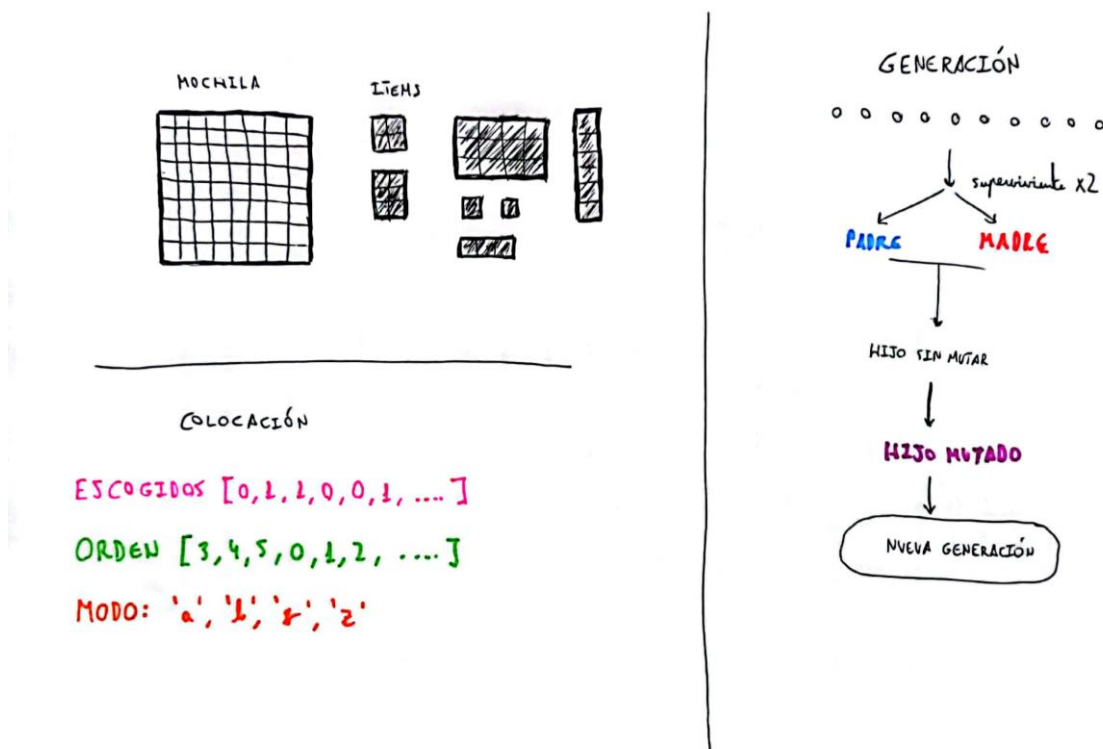 MOCHILA
ITEMS
COLOCACIÓN
ESCOGIDOS [0,1,1,0,0,1,....]
ORDEN [3,4,5,0,1,2, ....]
MODO: 'a', 'b', 'r', 'z'
GENERACIÓN
superviviente x2
PADRE MADRE
HIJO SIN MUTAR
HIJO MUTADO
NUEVA GENERACIÓN